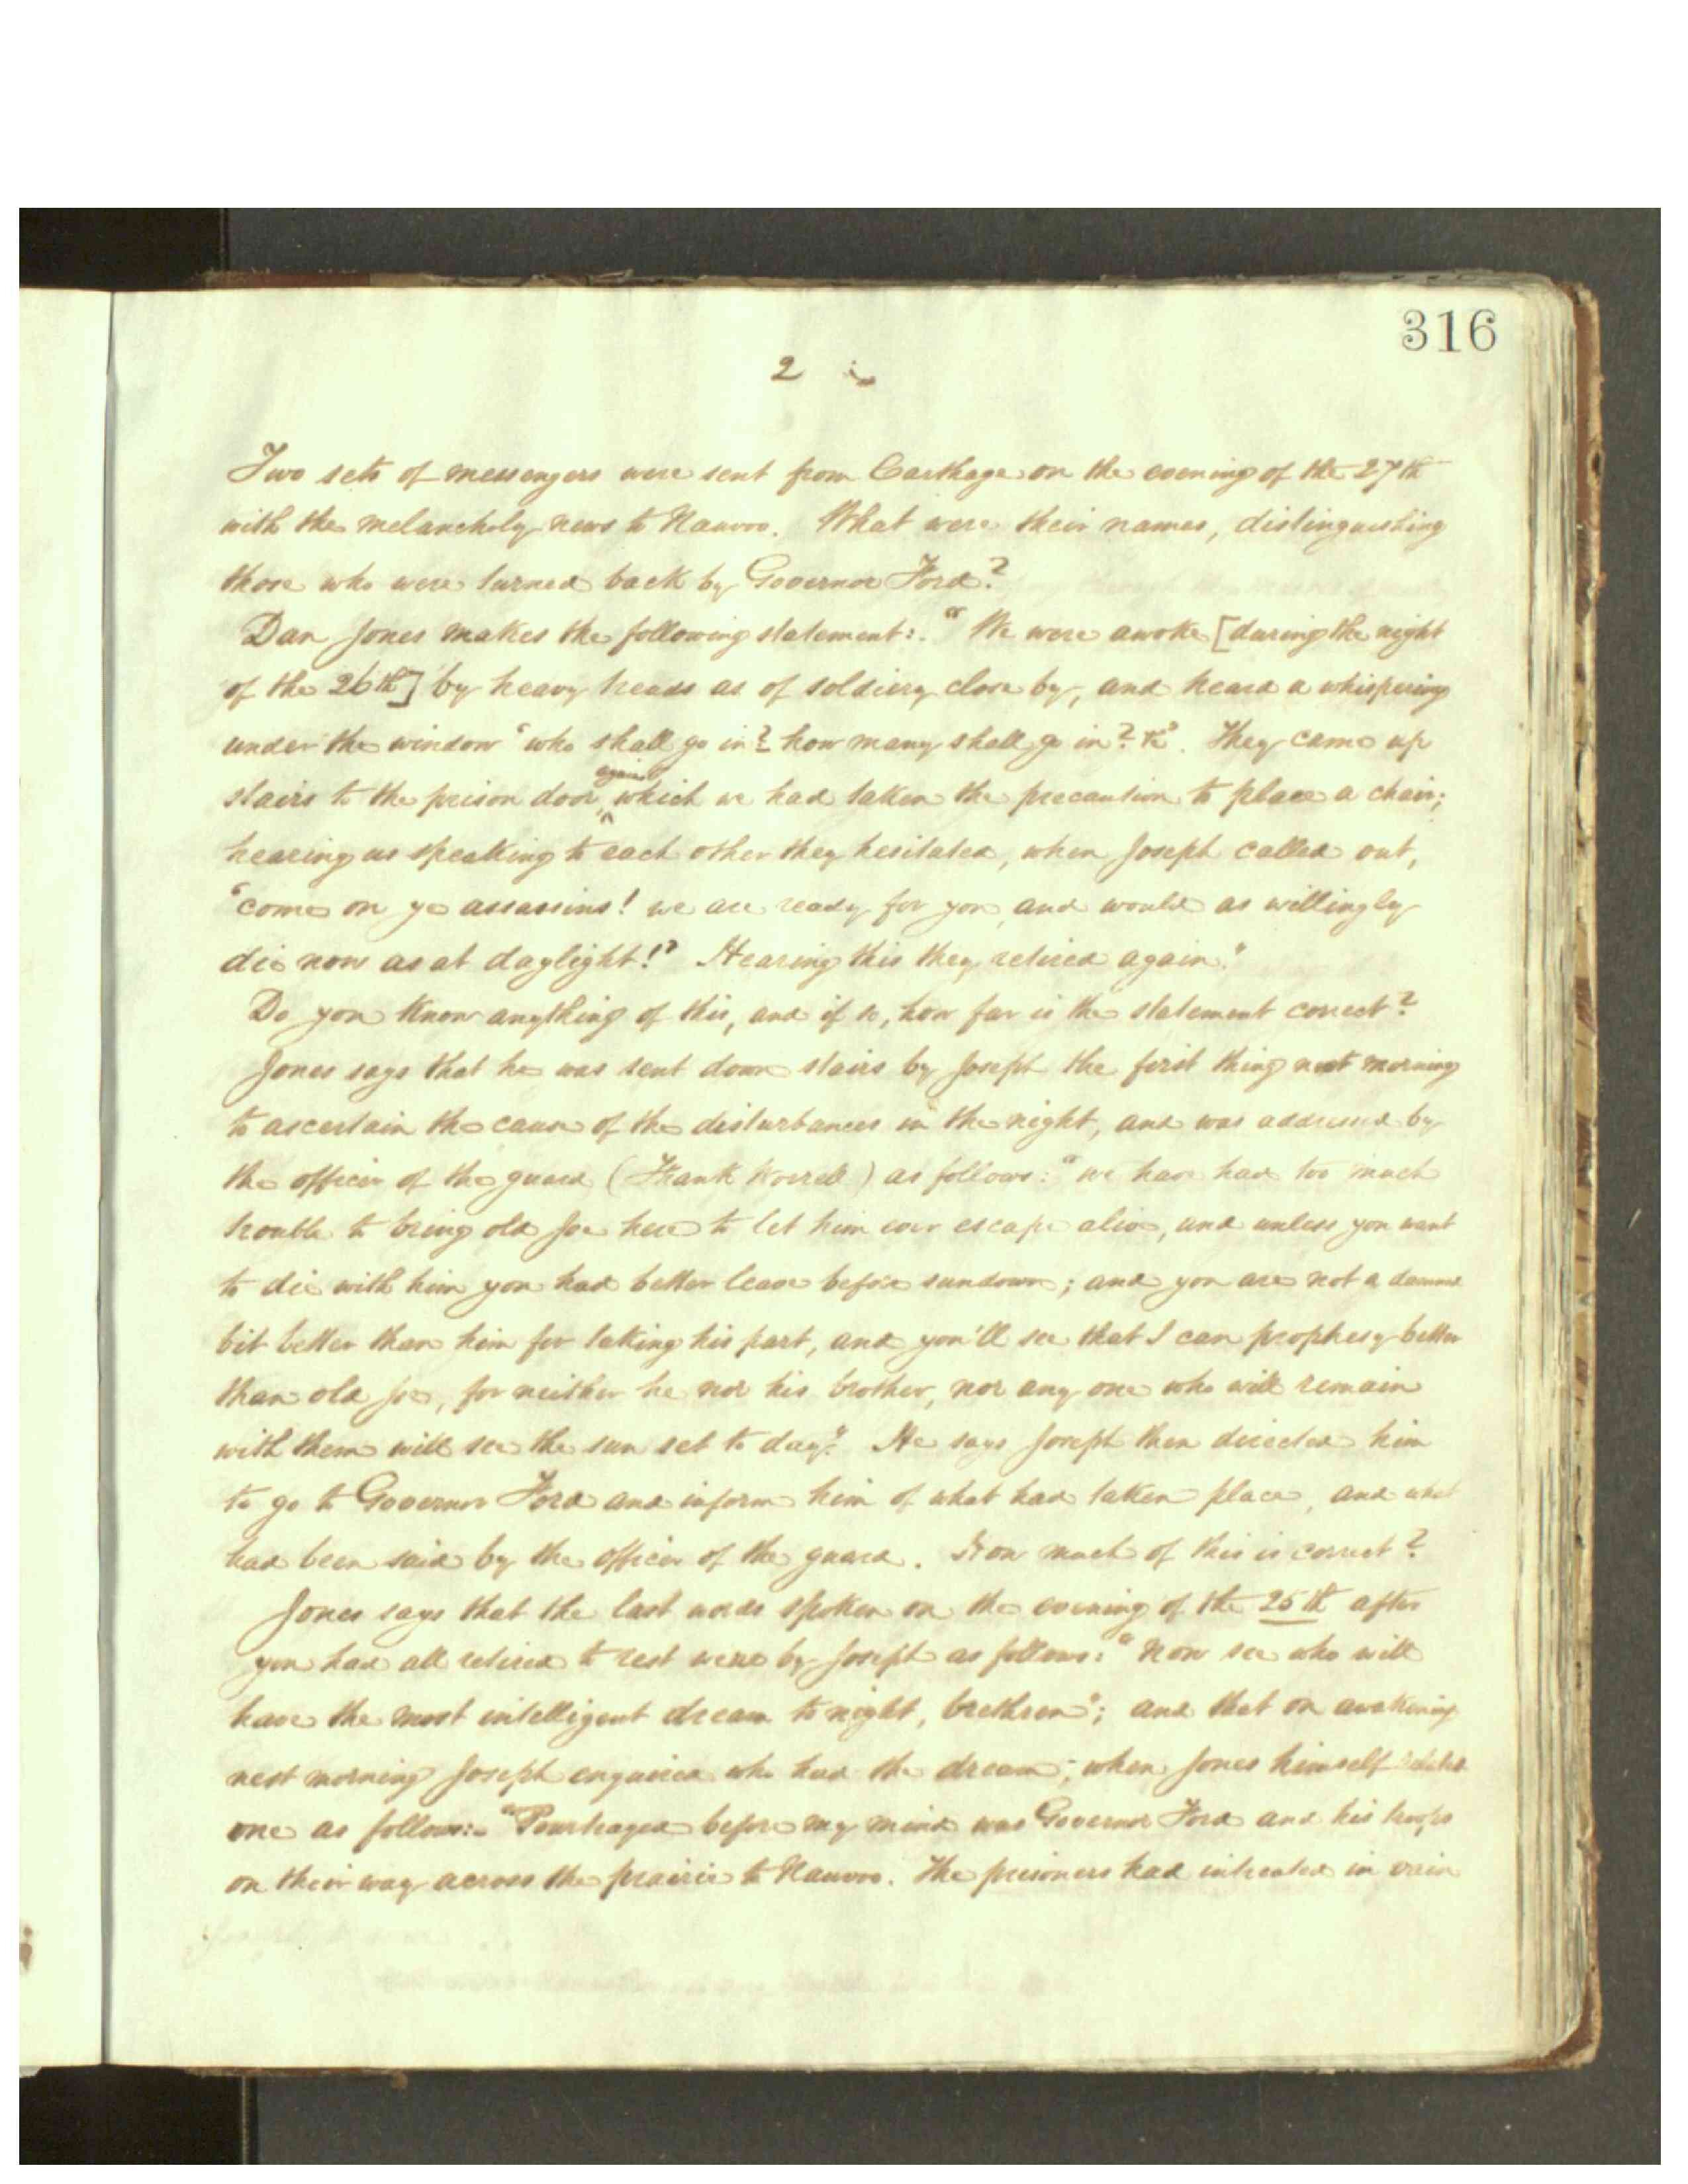 316
2
Two sets of messengers were sent from Carthage on the evening of the 27th
with the melancholy news to Nauvoo. What were their names, distinguishing
those who were turned back by Governor Ford?
Dan Jones makes the following statement:. "We were awoke [during the night
of the 26th] by heavy treads as of soldiery close by, and heard a whispering
under the window 'who shall go in? how many shall go in? &c'. They came up
stairs to the prison door, against which we had taken the precaution to place a chair;
hearing us speaking to each other they hesitated, when Joseph called out,
'come on ye assassins! we are ready for you, and would as willingly
die now as at daylight!' Hearing this they retired again."
Do you know anything of this, and if so, how far is the statement correct?
Jones says that he was sent down stairs by Joseph the first thing next morning
to ascertain the cause of the disturbances in the night, and was addressed by
the officer of the guard (Frank Worrell) as follows: "we have had too much
trouble to bring old Joe here to let him ever escape alive, and unless you want
to die with him you had better leave before sundown; and you are not a damned
bit better than him for taking his part, and you'll see that I can prophesy better
than old Joe, for neither he nor his brother, nor any one who will remain
with them will see the sun set to day". He says Joseph then directed him
to go to Governor Ford and inform him of what had taken place, and what
had been said by the officer of the guard. How much of this is correct?
Jones says that the last words spoken on the evening of the 25th after
you had all retired to rest were by Joseph as follows: "Now see who will
have the most intelligent dream to night, brethren"; and that on awakening
next morning Joseph enquired who had the dream; when Jones himself related
one as follows:. "Pourtrayed before my mind was Governor Ford and his troops
on their way across the prairie to Nauvoo. The prisoners had intreated in vain